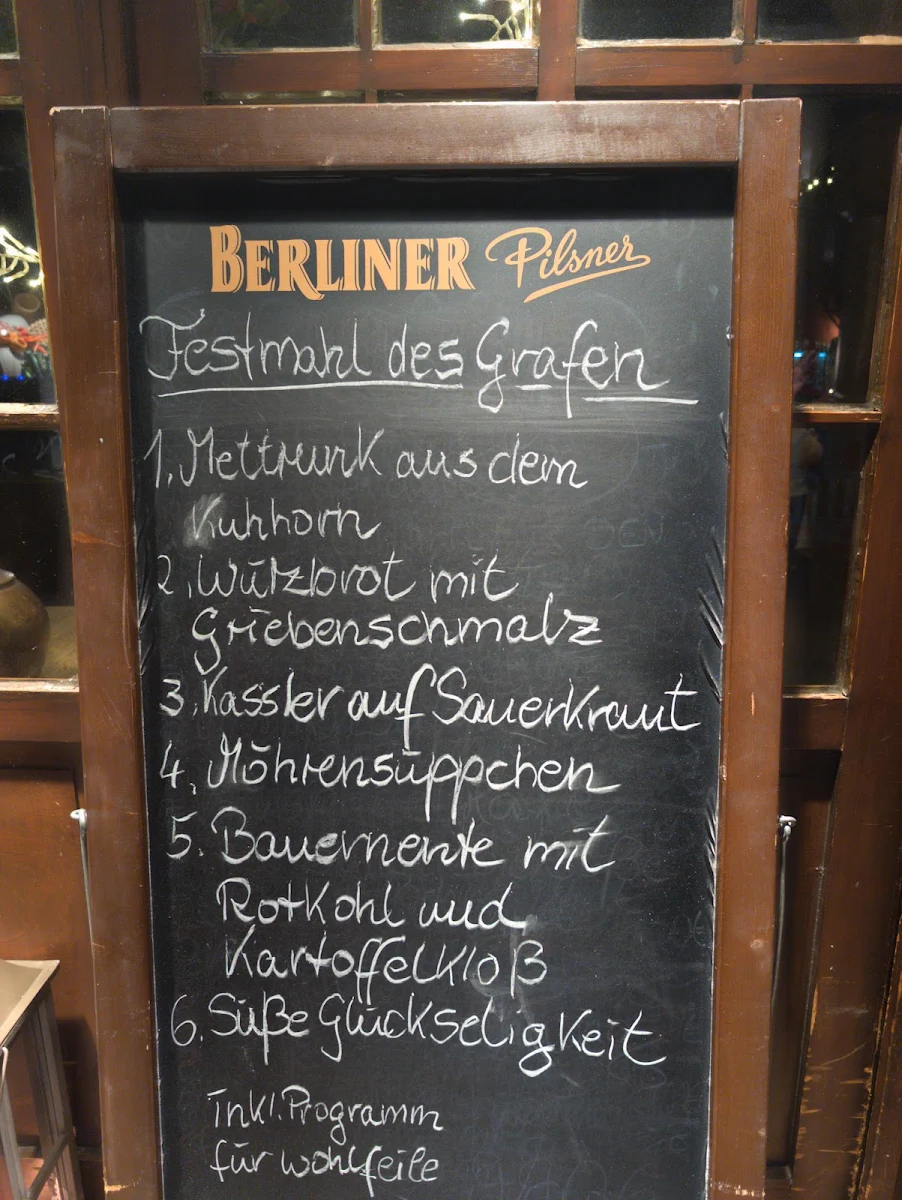 BERLINER Pilsner
Festmahl des Grafen
1. Mettrunk aus dem
Kuhhorn
2. Würzbrot mit
Griebenschmalz
3. Kassler auf Sauerkraut
4. Möhrensüppchen
5. Bauernente mit
Rotkohl und
Kartoffelkloß
6. Süße Glückseligkeit
inkl. Programm
für wohlfeile